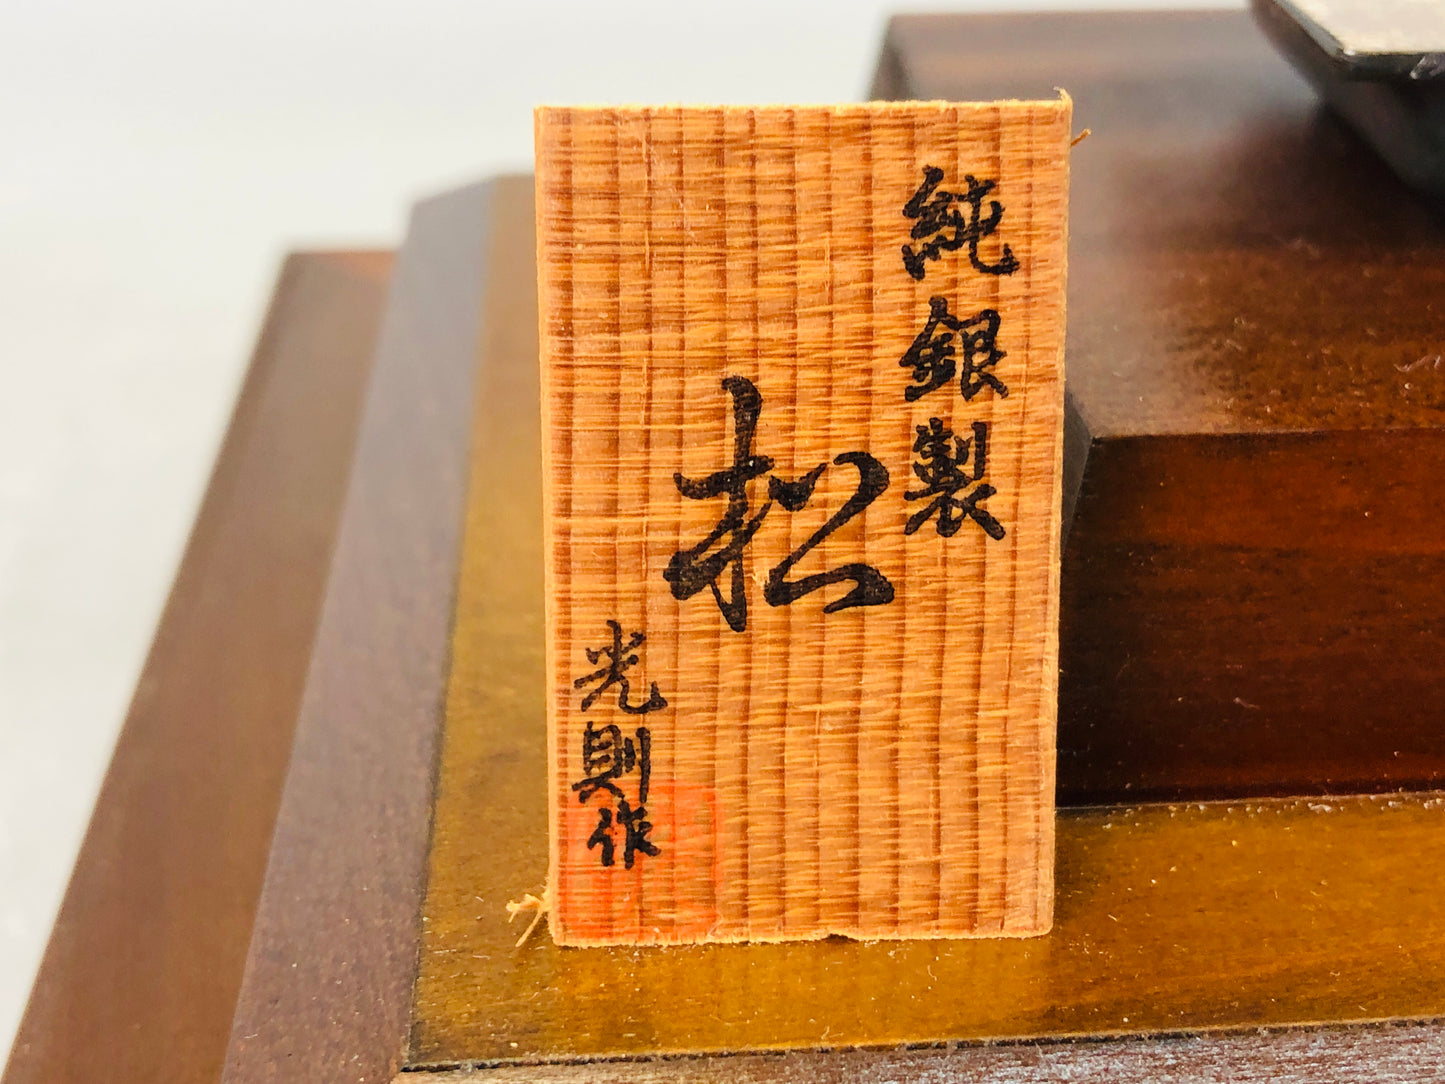 純銀製
松
光則作